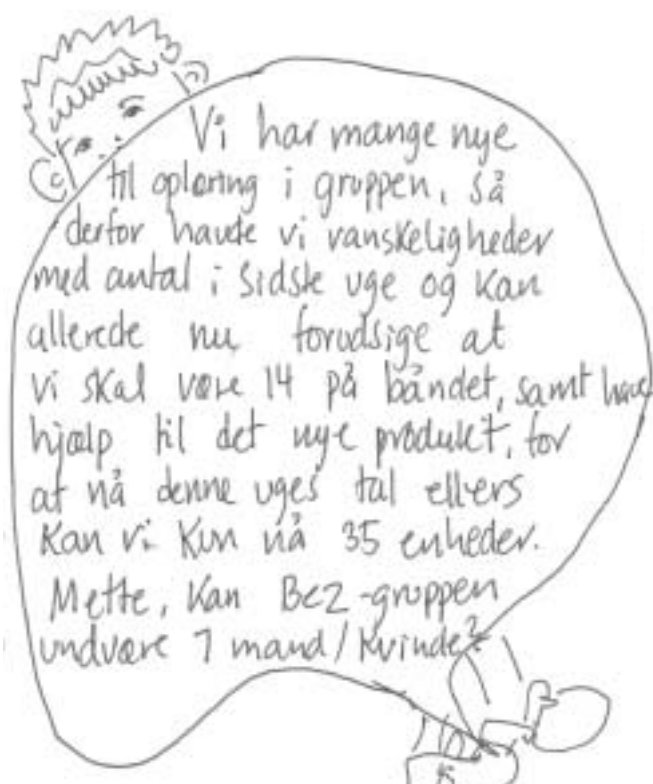 Vi har mange nye
til oplæring i gruppen, så
derfor havde vi vanskeligheder
med antal i sidste uge og kan
allerede nu forudsige at
vi skal være 14 på båndet, samt have
hjælp til det nye produkt, for
at nå denne uges tal ellers
kan vi kun nå 35 enheder.
Mette, kan Bez-gruppen
undvære 1 mand/kvinde?